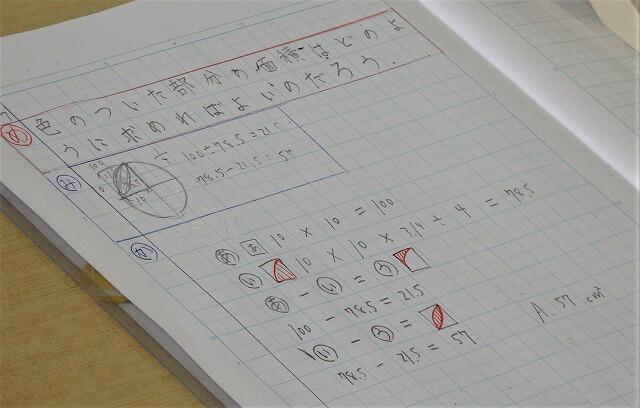 め 色のついた部分の面積はどのよ
うに求めればよいのだろう.
み 100÷78.5=21.5
78.5-21.5=57
100
10
か
あ あ 10 × 10 = 100
い 10 × 10 × 3.14 ÷ 4 = 78.5
あ - い = う
100 - 78.5 = 21.5
い - う =
78.5 - 21.5 = 57
A. 57 cm²